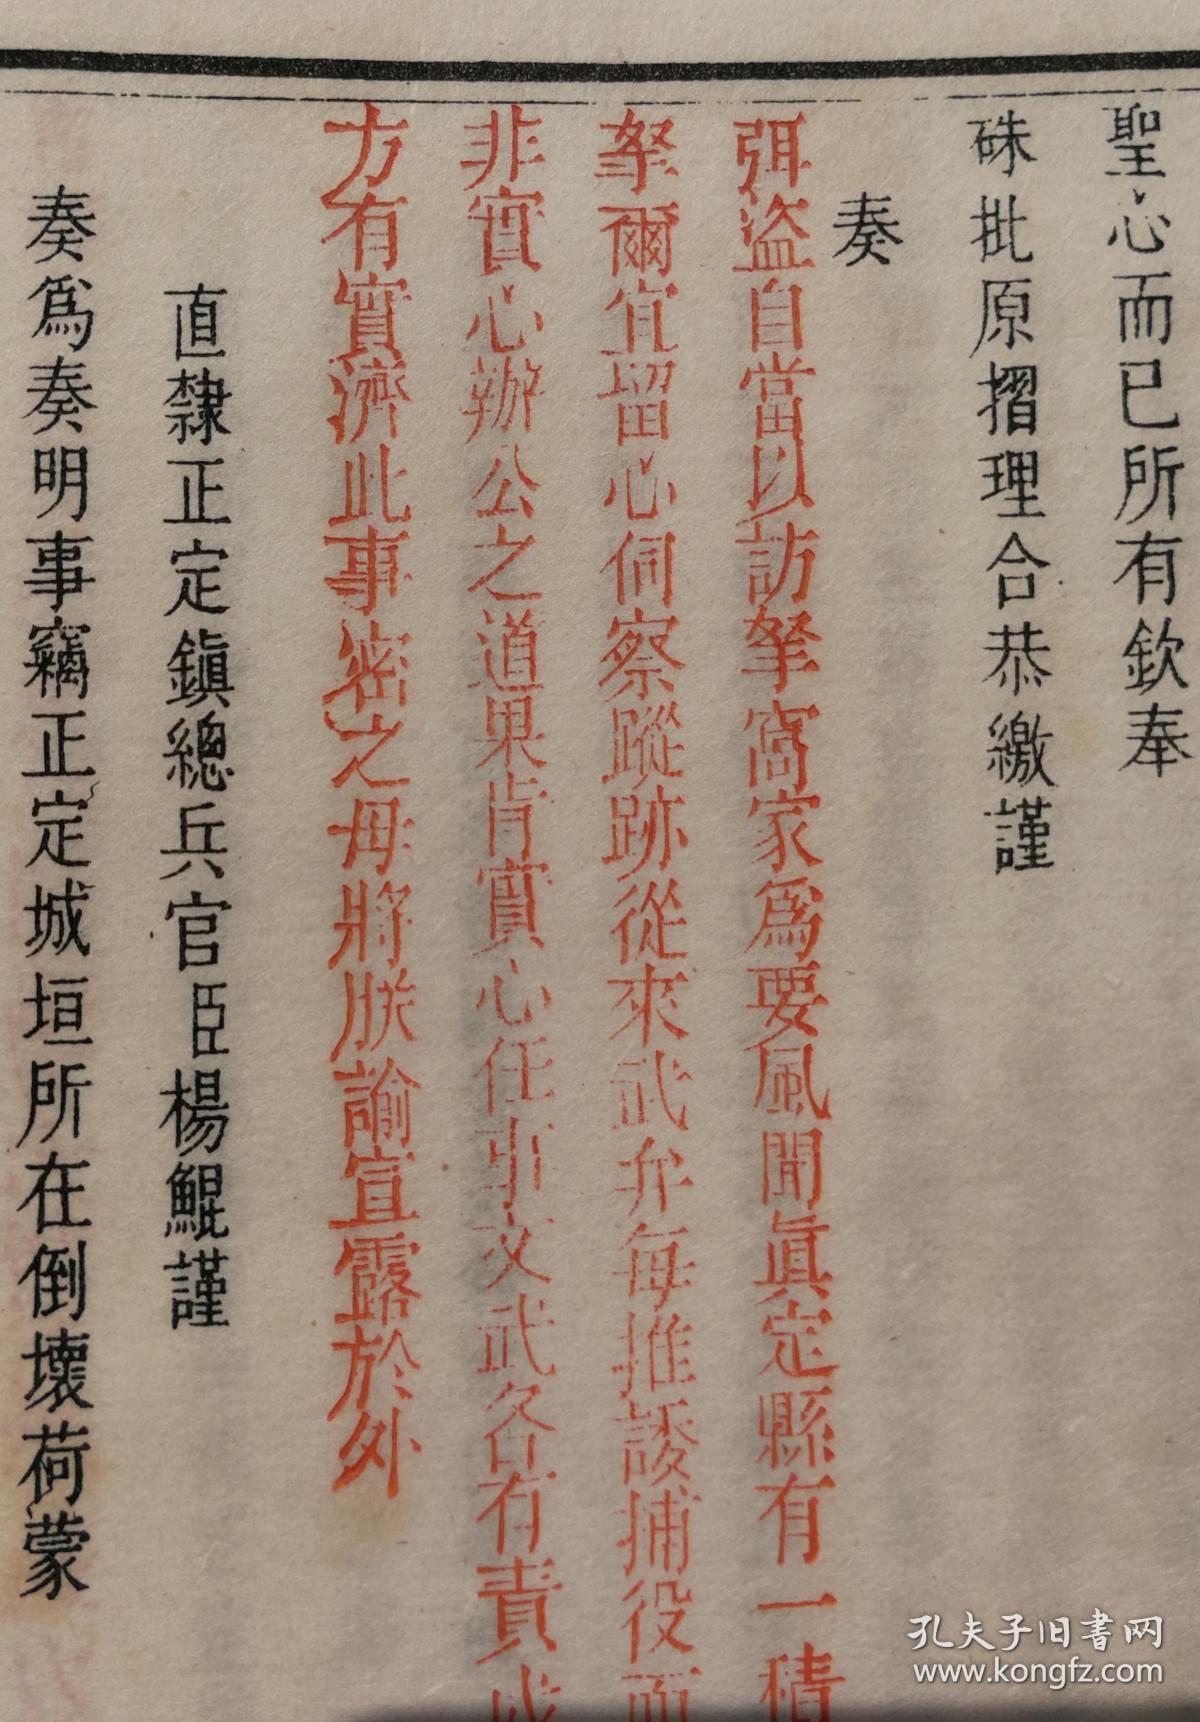 聖心而已所有欽奉
硃批原摺理合恭繳謹
奏
弭盜自當以訪拏窩家爲要風聞眞定縣有一積
拏爾宜留心伺察蹤跡從來武弁每推諉捕役而
非實心辦公之道果肯實心任事文武各有責成
方有實濟此事密之毋將朕諭宣露於外
直隸正定鎭總兵官臣楊鯤謹
奏爲奏明事竊正定城垣所在倒壞荷蒙
孔夫子旧书网
www.kongfz.com